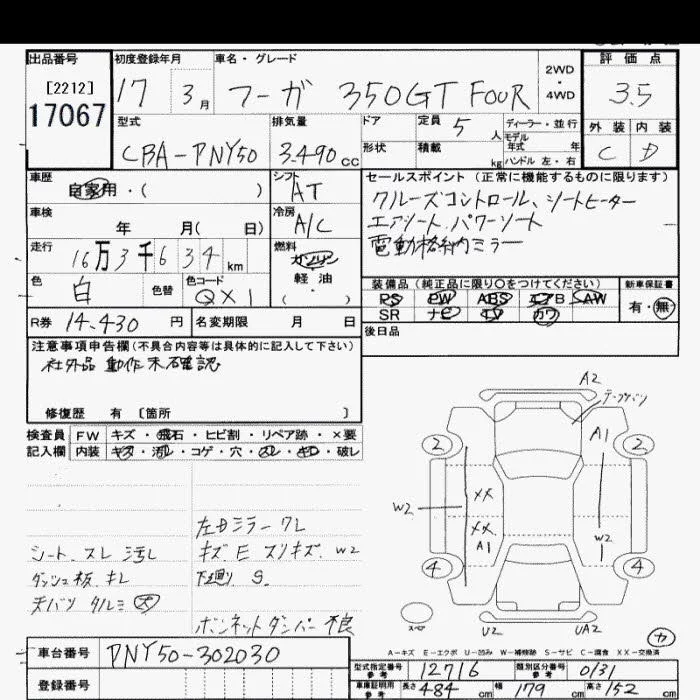 出品番号 初度登録年月 車名・グレード 評価点
[2212]
17067 17 3月 フーガ 350GT FOUR 2WD・4WD 3.5
型式 排気量 ドア 定員 5人 ディーラー・並行 外装 内装
モデル年式 年
CBA-PNY50 3.490cc 形状 積載 kg ハンドル 左・右 C D
車歴 自家用・( ) シフト AT セールスポイント(正常に機能するものに限ります)
クルーズコントロール、シートヒーター
車検 年 月( 日) 冷房 A/C エアシート、パワーシート
電動格納ミラー
走行 16万3千634km 燃料 ガソリン・軽油・( )
色 白 色替 色コード QX1 装備品(純正品に限り○をつけてください) 新車保証書
PS PW ABS エアB SAW 有・無
R券 14.430円 名変期限 月 日 SR ナビ TV カワ
後日品
注意事項申告欄(不具合内容等は具体的に記入して下さい)
社外品 動作未確認
修復歴 有 [箇所 ]
検査員 FW キズ・飛石・ヒビ割・リペア跡・×要
記入欄 内装 キズ・汚レ・コゲ・穴・スレ・キレ・破レ
A2
テープバリ
2 A1 2
W2 XX
XX W2
A1
4 4
スペア U2 UA2 カ
左ドミラー ワレ
シート スレ 汚レ キズ E スリキズ W2
ダッシュ板 キレ 下廻り S
天バリ タルミ 大
ボンネットダンパー不良
A=キズ E=エクボ U=凹み W=補修跡 S=サビ C=腐食 XX=交換済
車台番号 PNY50-302030
型式指定番号 12716 類別区分番号 0131
登録番号 車庫証明用参考 長さ 484cm 幅 179cm 高さ 152cm